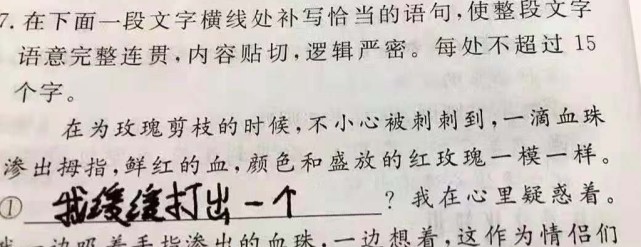 7.在下面一段文字横线处补写恰当的语句,使整段文字
语意完整连贯,内容贴切,逻辑严密。每处不超过 15
个字。
在为玫瑰剪枝的时候,不小心被刺刺到,一滴血珠
渗出拇指,鲜红的血,颜色和盛放的红玫瑰一模一样。
① 我缓缓打出一个 ? 我在心里疑惑着。
我一边吸着手指渗出的血珠,一边想着,这作为情侣们